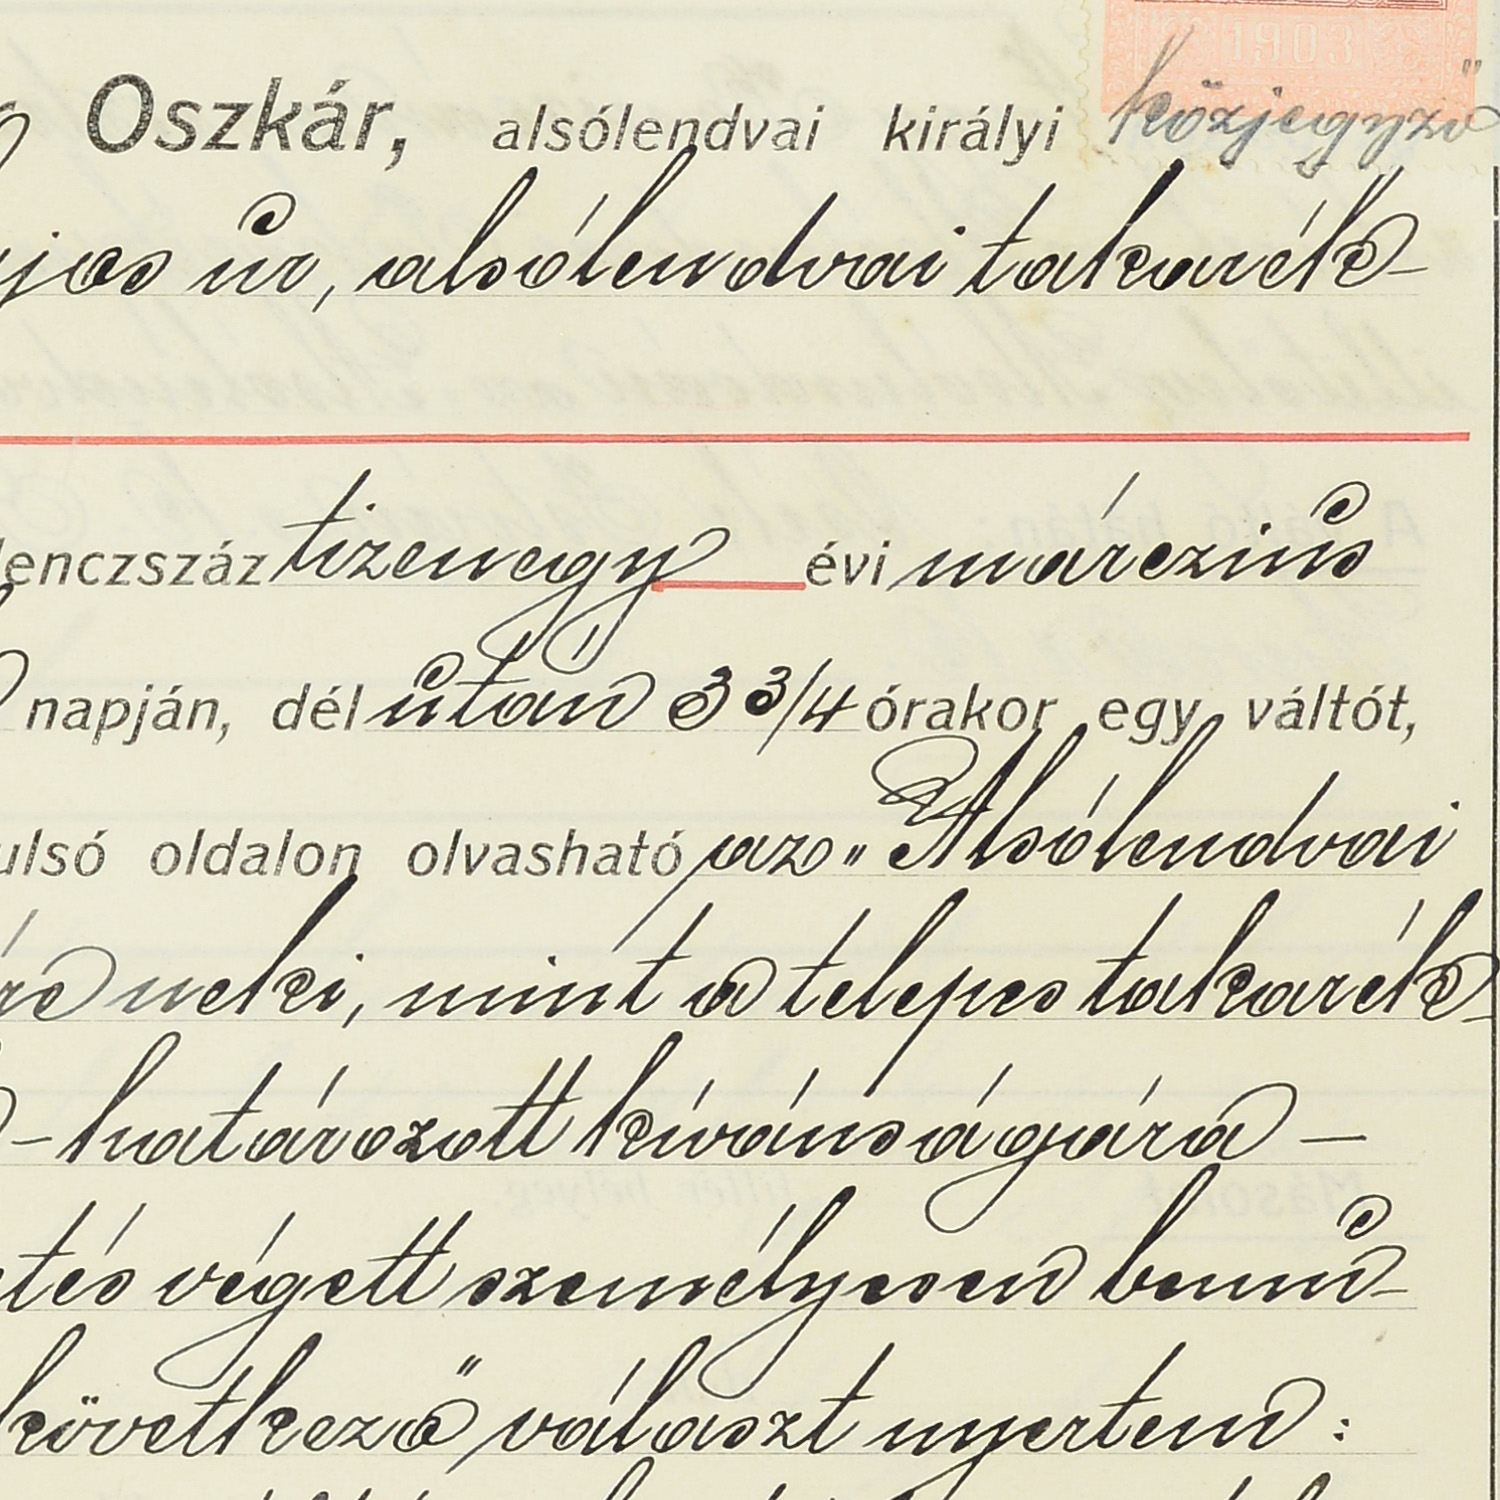 1903
Oszkár, alsólendvai királyi közjegyző
jos úr, alsólendvai takarék-
lenczszáz tizenegy évi márczius
napján, dél után 3 3/4 órakor egy váltót,
ulsó oldalon olvasható az „Alsólendvai
re neki, mint a telepes takarék-
– határozott kívánságára –
tés végett személyesen bemu-
következő választ nyertem: